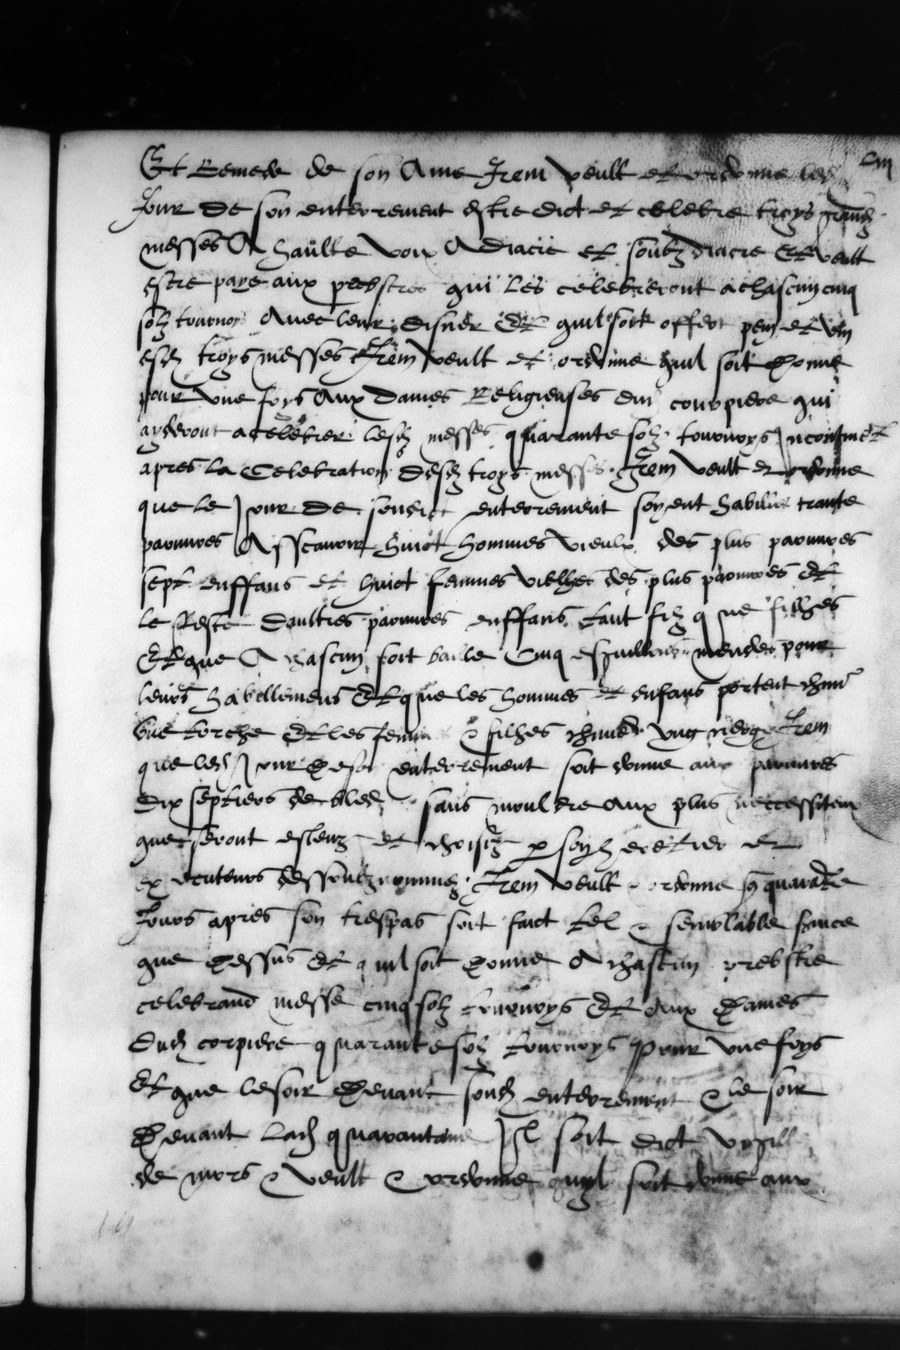 Et Remede de son Ame Item veult et ordonne led
Jour de son enterrement estre dict et celebre troys grandz
messes A haulte voix A diacre et soubz diacre Et veult
estre paye aux prebstres qui les celebreront a chascun cinq
solz tournois Avec leur disner Et quil soit offert pain et vin
esd troys messes Item veult et ordonne quil soit donne
pour une foys Aux Dames Religieuses du courpiere qui
ayderont a celebrer lesd messes quarante solz tournoys
apres La Celebration desd troys messes Item veult et ordonne
que le Jour de sondict enterrement soyent habilles trante
pauvres Asscavoir huict hommes vieulx des plus pauvres
sept enffans et huict femmes vielhes des plus pauvres et
le Reste Daultres pauvres enffans tant filz que filhes
Et que A chascun soit baille Cinq pour
leurs habillemens Et que les hommes et enfans portent
une torche Et les femmes & filhes ung cierge Item
que led Jour Desd enterrement soit donne aux pauvres
dix septiers de bled sans mouldre aux plus neccessiteux
que seront esleuz et choisiz par sond heretier et
executeurs dessoubz nommez Item veult & ordonne quarante
Jours apres son trespas soit faict tel & semblable
que dessus Et quil soit donne A chascun prebstre
celebrand messe cinq solz tournoys Et aux Dames
dud corpiere quarante solz tournoys pour une foys
Et que le soir devant sond enterrement & le soir
Devant Lad quarantaine Il soit dict
de mors & veult & ordonne quil soit donne aux